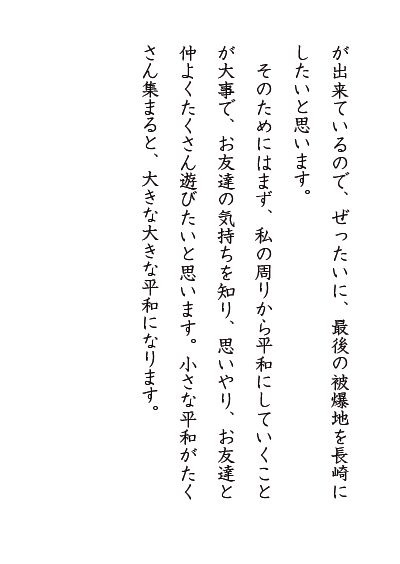 が出来ているので、ぜったいに、最後の被爆地を長崎に
したいと思います。
そのためにはまず、私の周りから平和にしていくこと
が大事で、お友達の気持ちを知り、思いやり、お友達と
仲よくたくさん遊びたいと思います。小さな平和がたく
さん集まると、大きな大きな平和になります。